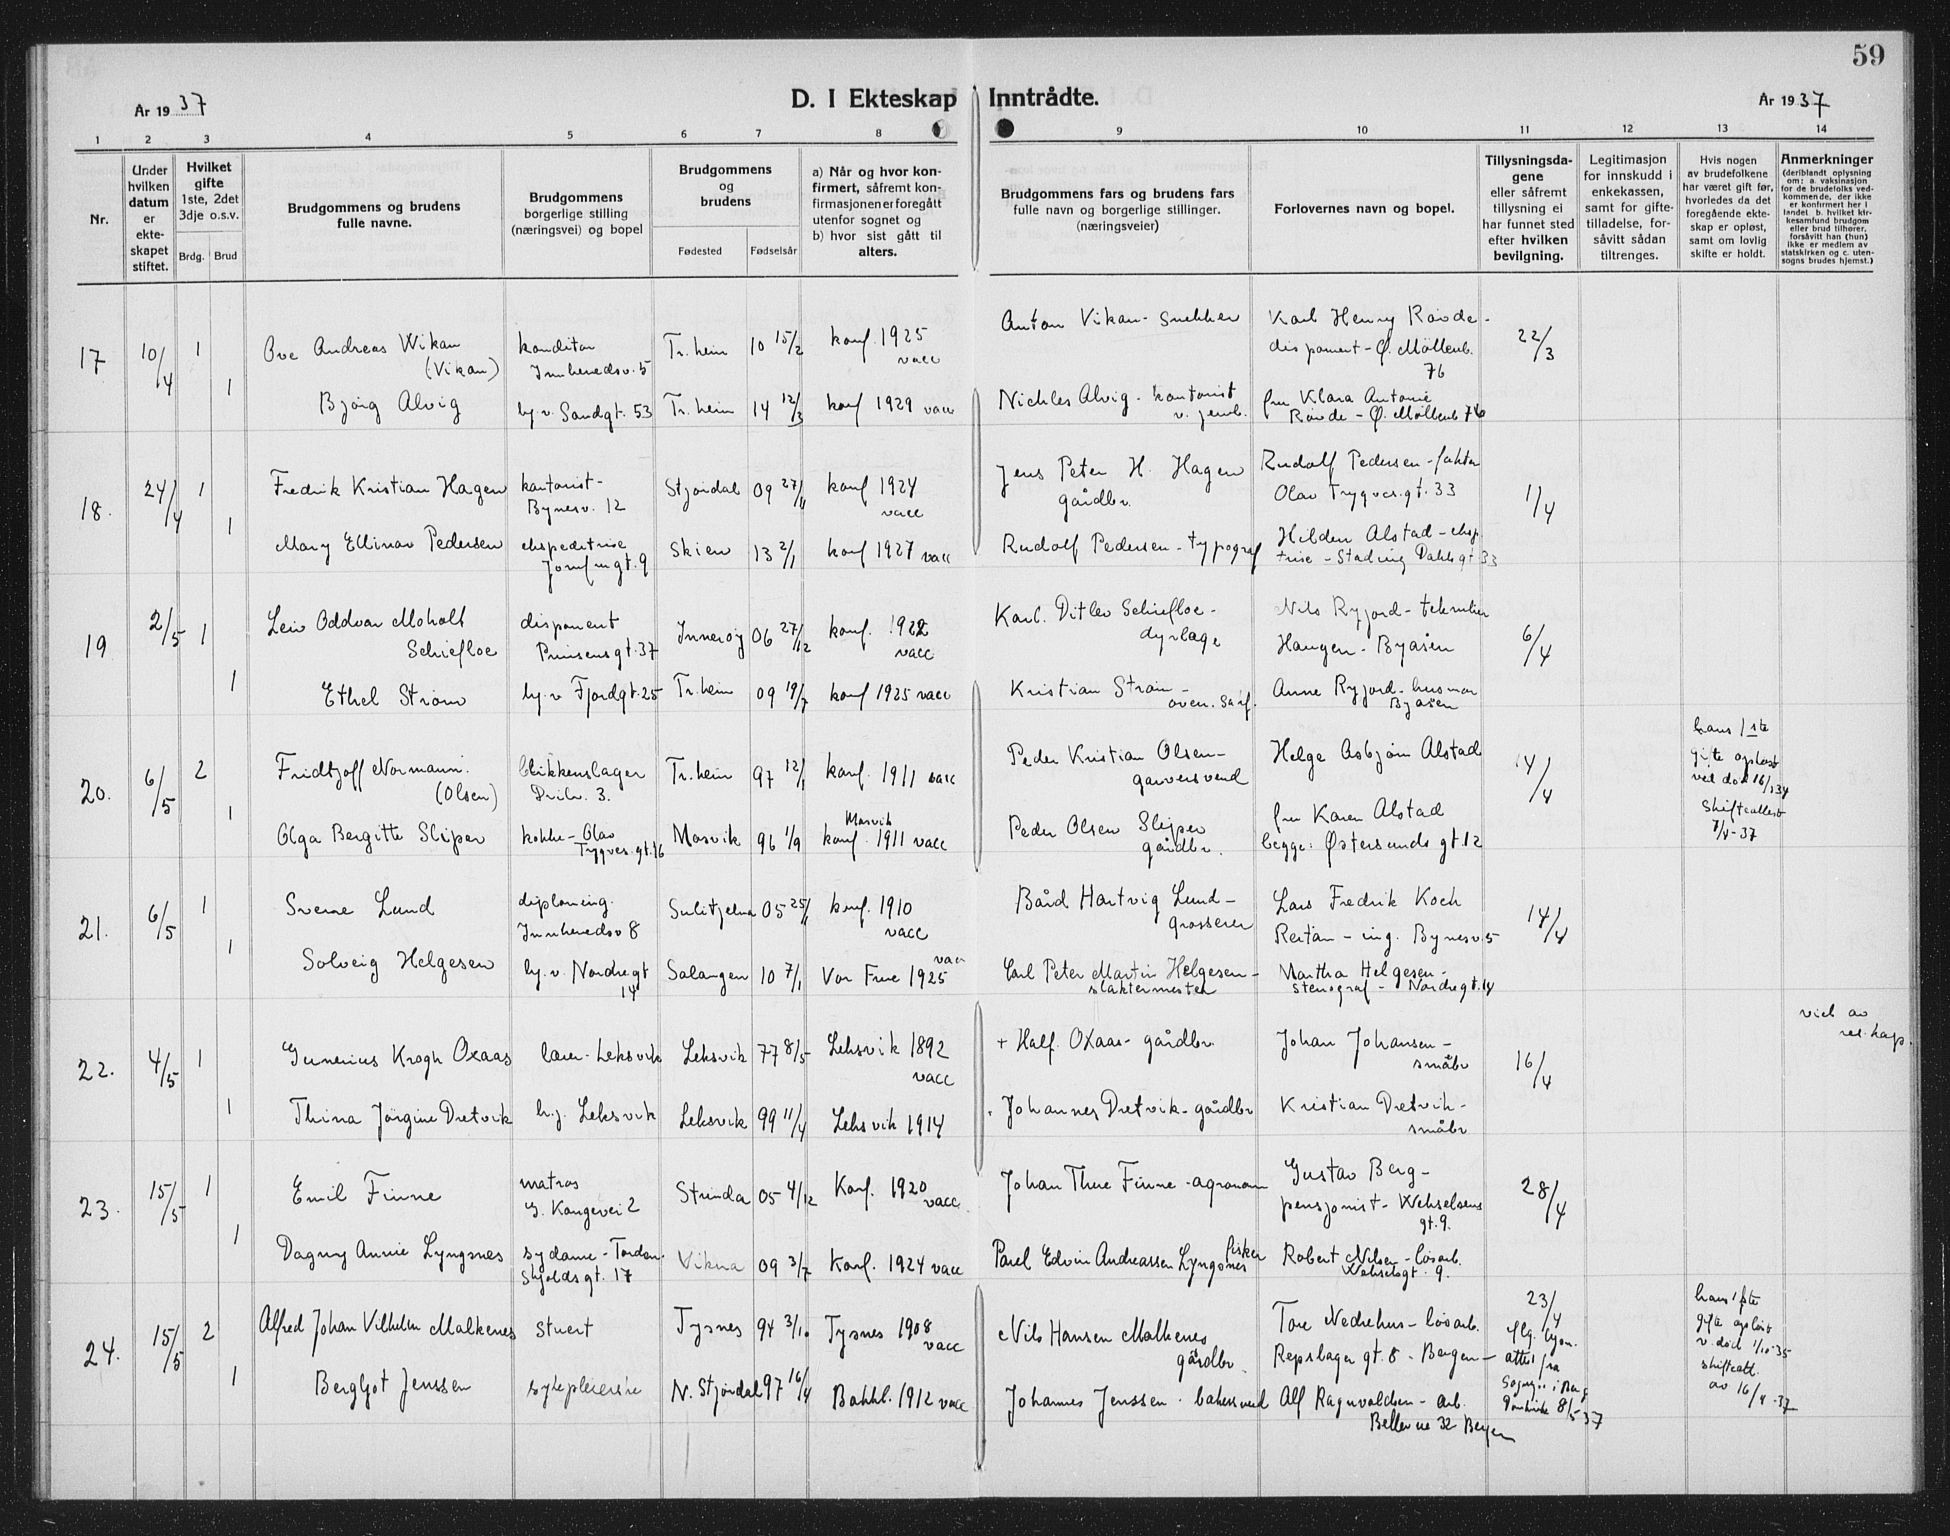 59
År 19 37
D. I Ekteskap Inntrådte.
År 19 37
1 2 3 4 5 6 7 8 9 10 11 12 13 14
Nr.
Under hvilken datum er ekteskapet stiftet.
Hvilket gifte 1ste, 2det 3dje o.s.v.
Brdg. Brud
Brudgommens og brudens fulle navne.
Brudgommens borgerlige stilling (næringsvei) og bopel
Brudgommens og brudens
Fødested Fødselsår
a) Når og hvor konfirmert, såfremt konfirmasjonen er foregått utenfor sognet og b) hvor sist gått til alters.
Brudgommens fars og brudens fars fulle navn og borgerlige stillinger. (næringsveier)
Forlovernes navn og bopel.
Tillysningsdagene eller såfremt tillysning ei har funnet sted efter hvilken bevilgning.
Legitimasjon for innskudd i enkekassen, samt for giftetilladelse, forsåvitt sådan tiltrenges.
Hvis nogen av brudefolkene har været gift før, hvorledes da det foregående ekteskap er opløst, samt om lovlig skifte er holdt.
Anmerkninger (deriblandt oplysning om: a. vaksinasjon for de brudefolks vedkommende, der ikke er konfirmert her i landet b. hvilket kirkesamfund brudgom eller brud tilhører, forsåvitt han (hun) ikke er medlem av statskirken og c. utensogns brudes hjemst.)
17 10/4 1 Ove Andreas Wikan (Vikan) konditor Innheredsv. 5 Tr.heim 10 15/2 konf. 1925 vacc Anton Vikan - snekker Karl Henry Røvde - disponent - Ø. Møllenb. 76 22/3
1 Bjørg Alvig hj. v. Sandgt. 53 Tr.heim 14 12/3 konf 1929 vacc Nichles Alvig - kontorist v. jernb. fru Klara Antonie Røvde - Ø. Møllenb 76
18. 24/4 1 Fredrik Kristian Hagen kontorist - Bynesv. 12 Stjørdal 09 27/11 konf 1924 vacc Jens Peter H. Hagen gårdbr. Rudolf Pedersen - faktor Olav Trygves.gt. 33 1/4
1 Mary Ellinor Pedersen ekspeditrise Jomfrugt. 9 Skien 13 2/1 konf 1927 vacc Rudolf Pedersen - typograf Hildur Alstad - eksp. trise - Dahls gt. 33
19 2/5 1 Leiv Oddvar Moholt Schiefloe disponent Prinsensgt. 37 Inderøy 06 27/12 konf. 1922 vacc Karl Ditlev Schiefloe - dyrlæge Nils Ryjord - tekniker Haugen - Byåsen 6/4
1 Ethel Strøm hj. v Fjordgt. 25 Tr.heim 09 19/7 konf 1925 vacc Kristian Strøm - Anne Ryjord - husmor Byåsen
20. 6/5 2 Fridtjoff Normann. (Olsen) blikkenslager 3. Tr.heim 97 12/1 konf. 1911 vacc Peder Kristian Olsen - garversvend Helge Asbjørn Alstad 14/4 hans 1ste gifte opløst ved død 16/1 34 Skifteattest 7/4 - 37
1 Olga Bergitte Slipper kokke - Olav Trygves. gt. 16 Mosvik 96 1/9 Mosvik konf. 1911 vacc Peder Olsen Slipper gårdbr. fru Karen Alstad begge: Østersunds gt. 12
21. 6/5 1 Sverre Lund diploming. Innheredsv 8 Sulitjelma 05 25/11 konf. 1910 vacc Bård Hartvig Lund - grosserer Lars Fredrik Koch Reitan - ing. Bynesv. 5 14/4
1 Solveig Helgesen hj. v. Nordregt 14 Salangen 10 7/1 Vor Frue 1925 vacc Carl Peter Martin Helgesen - slaktermester Martha Helgesen - stenograf - Nordregt. 14
22. 4/5 1 Gunerius Krogh Oxaas lærer - Leksvik Leksvik 77 8/5 Leksvik 1892 vacc + Half. Oxaas - gårdbr. Johan Johansen - småbr 16/4 viet av res. kap.
1 Thina Jørgine Dretvik hj. Leksvik Leksvik 99 11/4 Leksvik 1914 Johannes Dretvik - gårdbr Kristian Dretvik - småbr
23. 15/5 1 Emil Finne matros G. Kongevei 2 Strinda 05 4/12 Konf. 1920 vacc. Johan Thore Finne - agronom Gustav Berg - pensjonist - Wehselsens gt. 9. 28/4
1 Dagny Annie Lyngsnes sydame - Tordenskjolds gt. 17 Vikna 09 3/7 Konf. 1924 vacc Parel Edvin Andreassen Lyngsnes fisker Robert Nilsen - løsarb. Wehselsgt. 9.
24. 15/5 2 Alfred Johan Vilhelm Malkenes stuert Tysnes 94 3/10 Tysnes 1908 vacc Nils Hansen Malkenes gårdbr. Tore Nedrehus - løsarb. Repslager gt. 8 - Bergen - 23/4 flg. lysn. attest fra 8/5 37 hans 1ste gifte opløst v. død 1/10 - 35 skifteatt. av 16/4 - 37
1 Bergljot Jenssen sykepleierske N. Stjørdal 97 16/4 Bakkl. 1912 vacc Johannes Jenssen - bakersvend Alf Ragnvaldsen - arb. Bellevue 32 Bergen